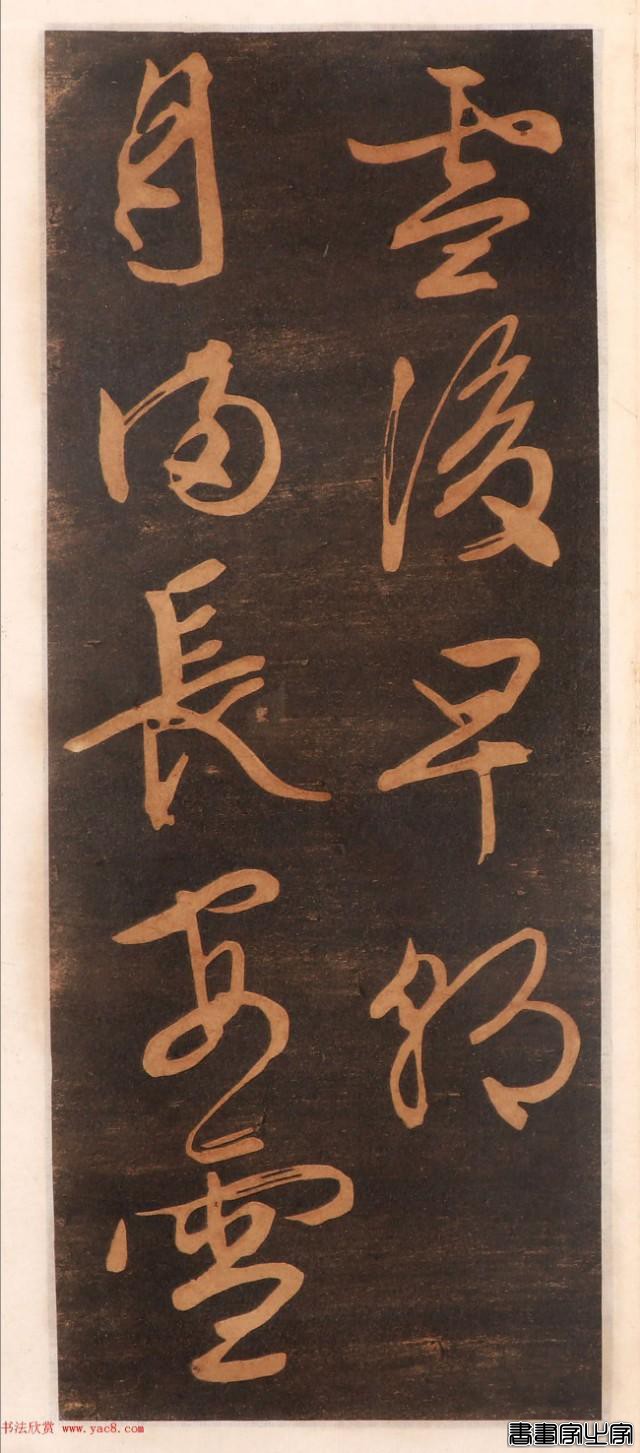 雪後早朝
長安雪
書法欣赏 www.yac8.com
書畫家之家